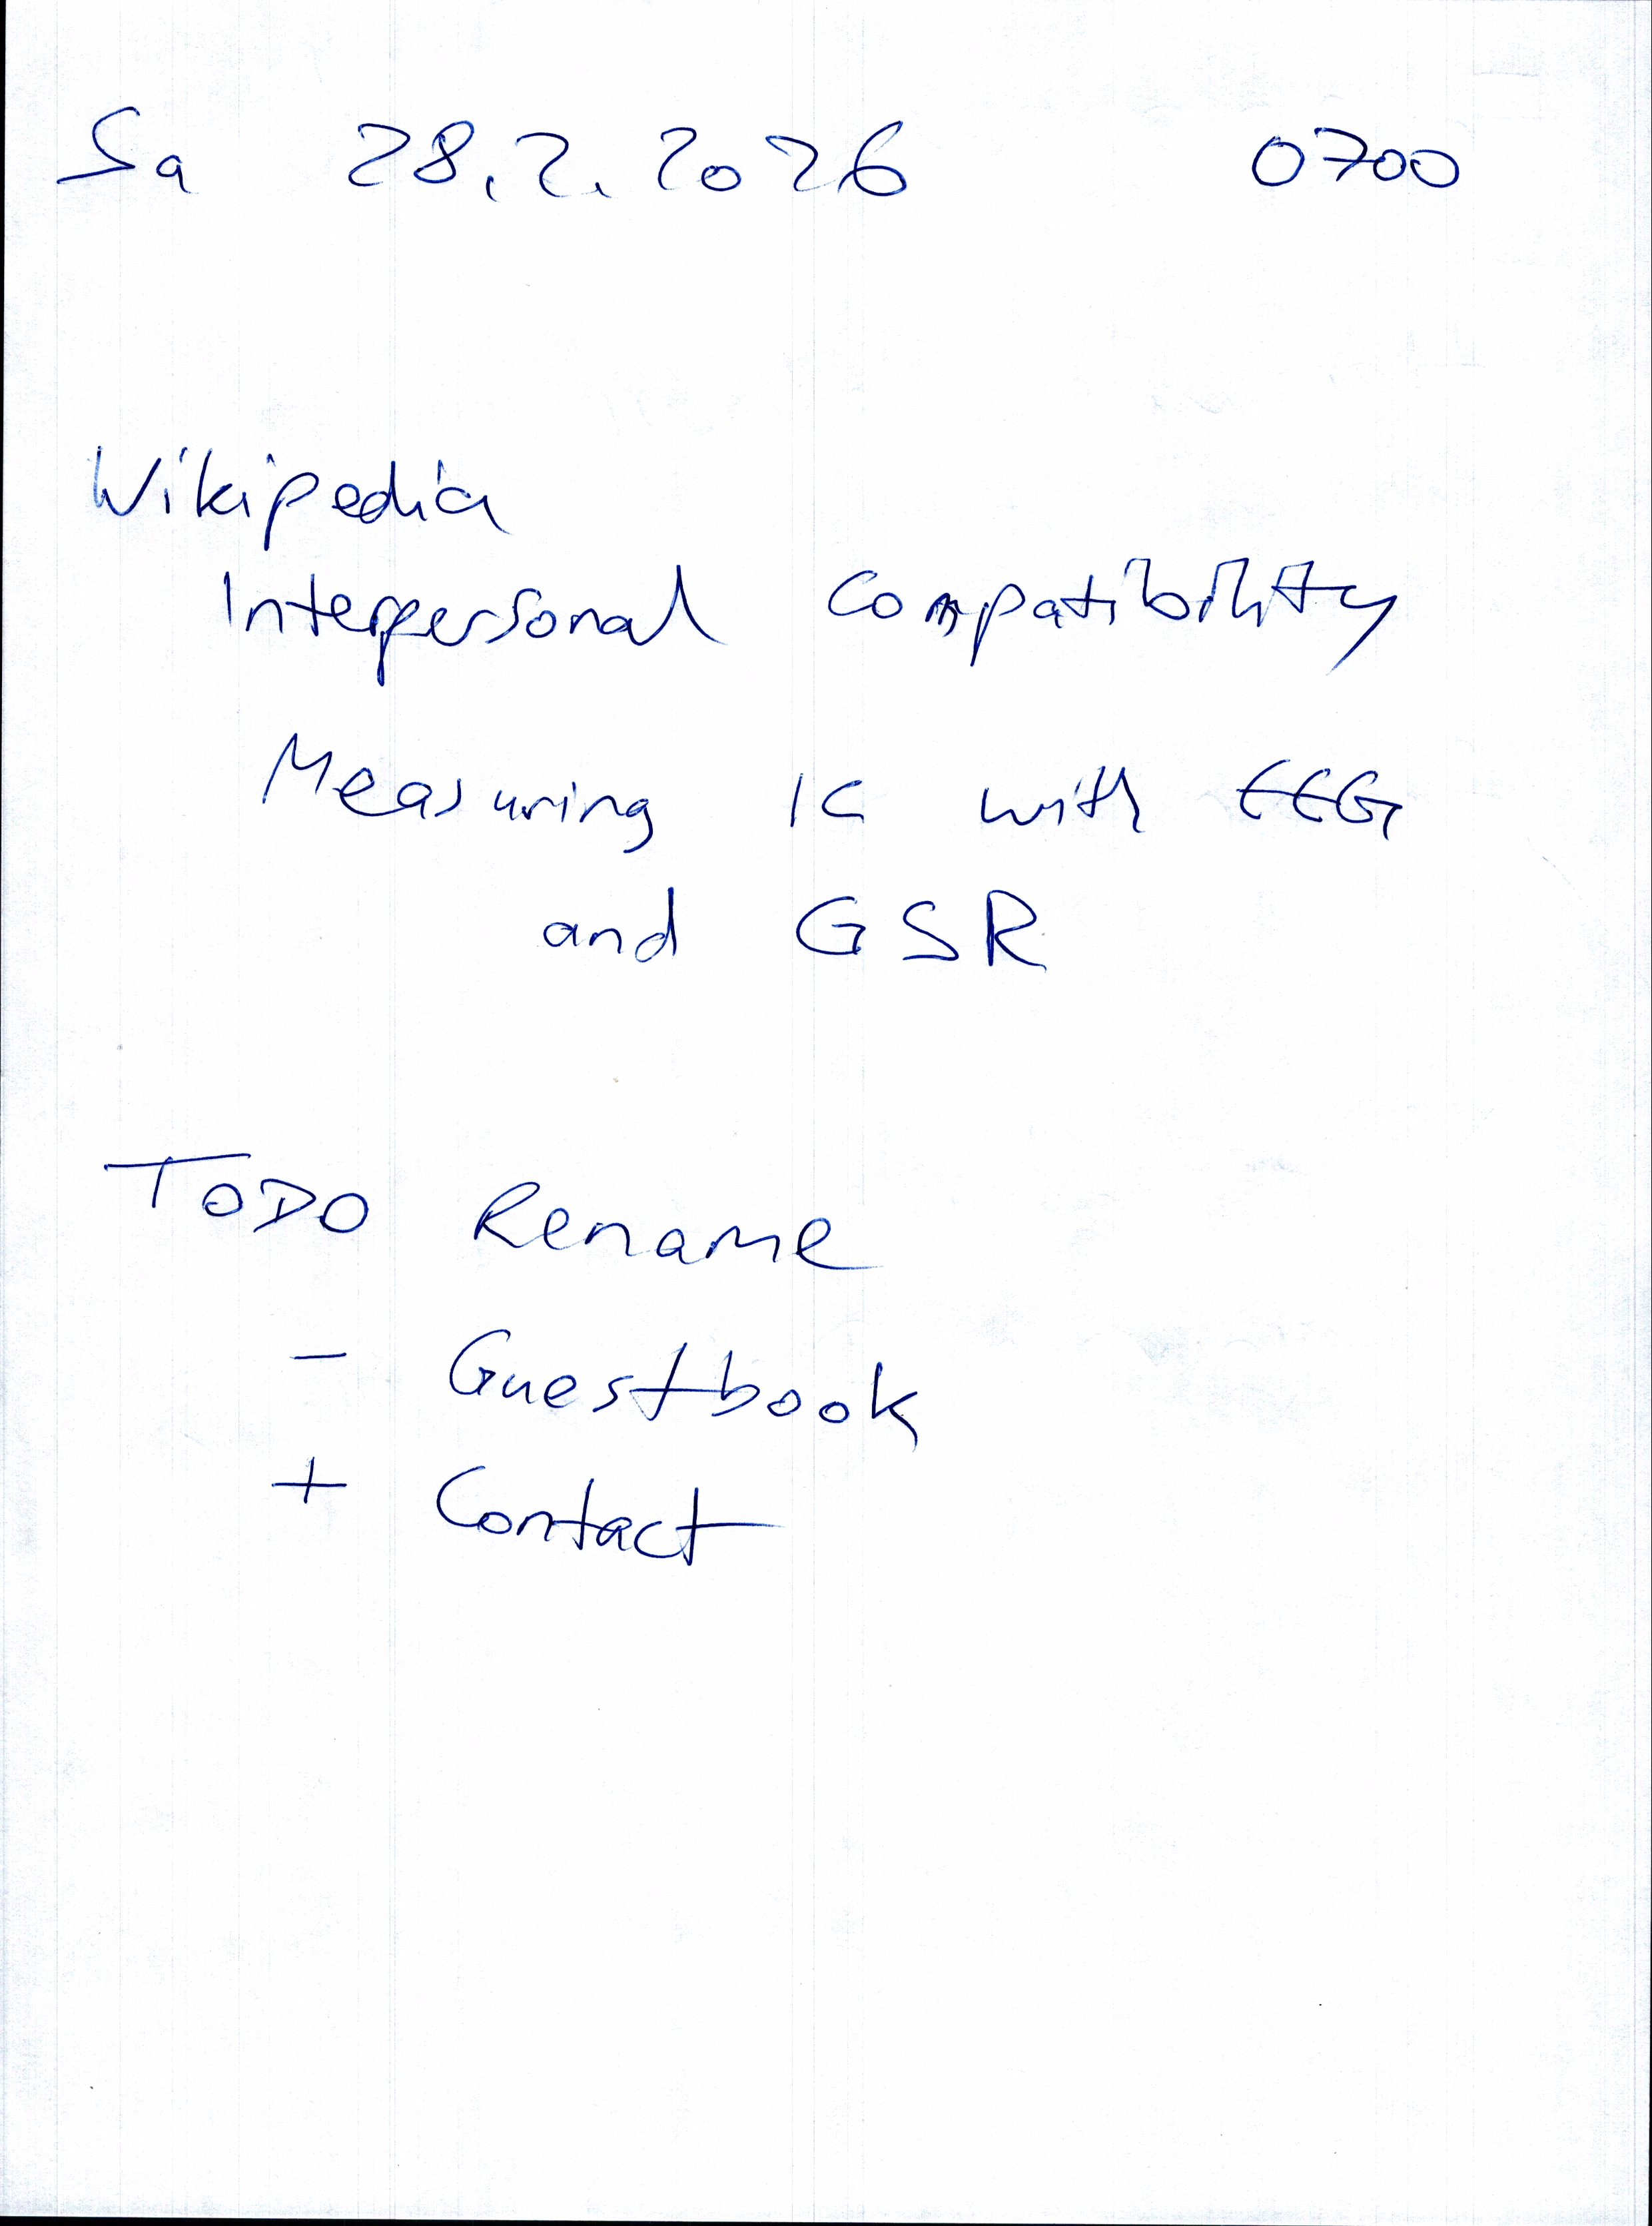 Sa 28.2.2026 0700
Wikipedia
Interpersonal Compatibility
Measuring IC with EEG
and GSR
TODO Rename
- Guestbook
+ Contact